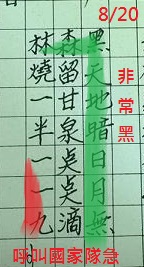 8/20
黑天地暗日月無
森留甘泉点点滴
林燒一半一一九
非常黑
呼叫國家隊急